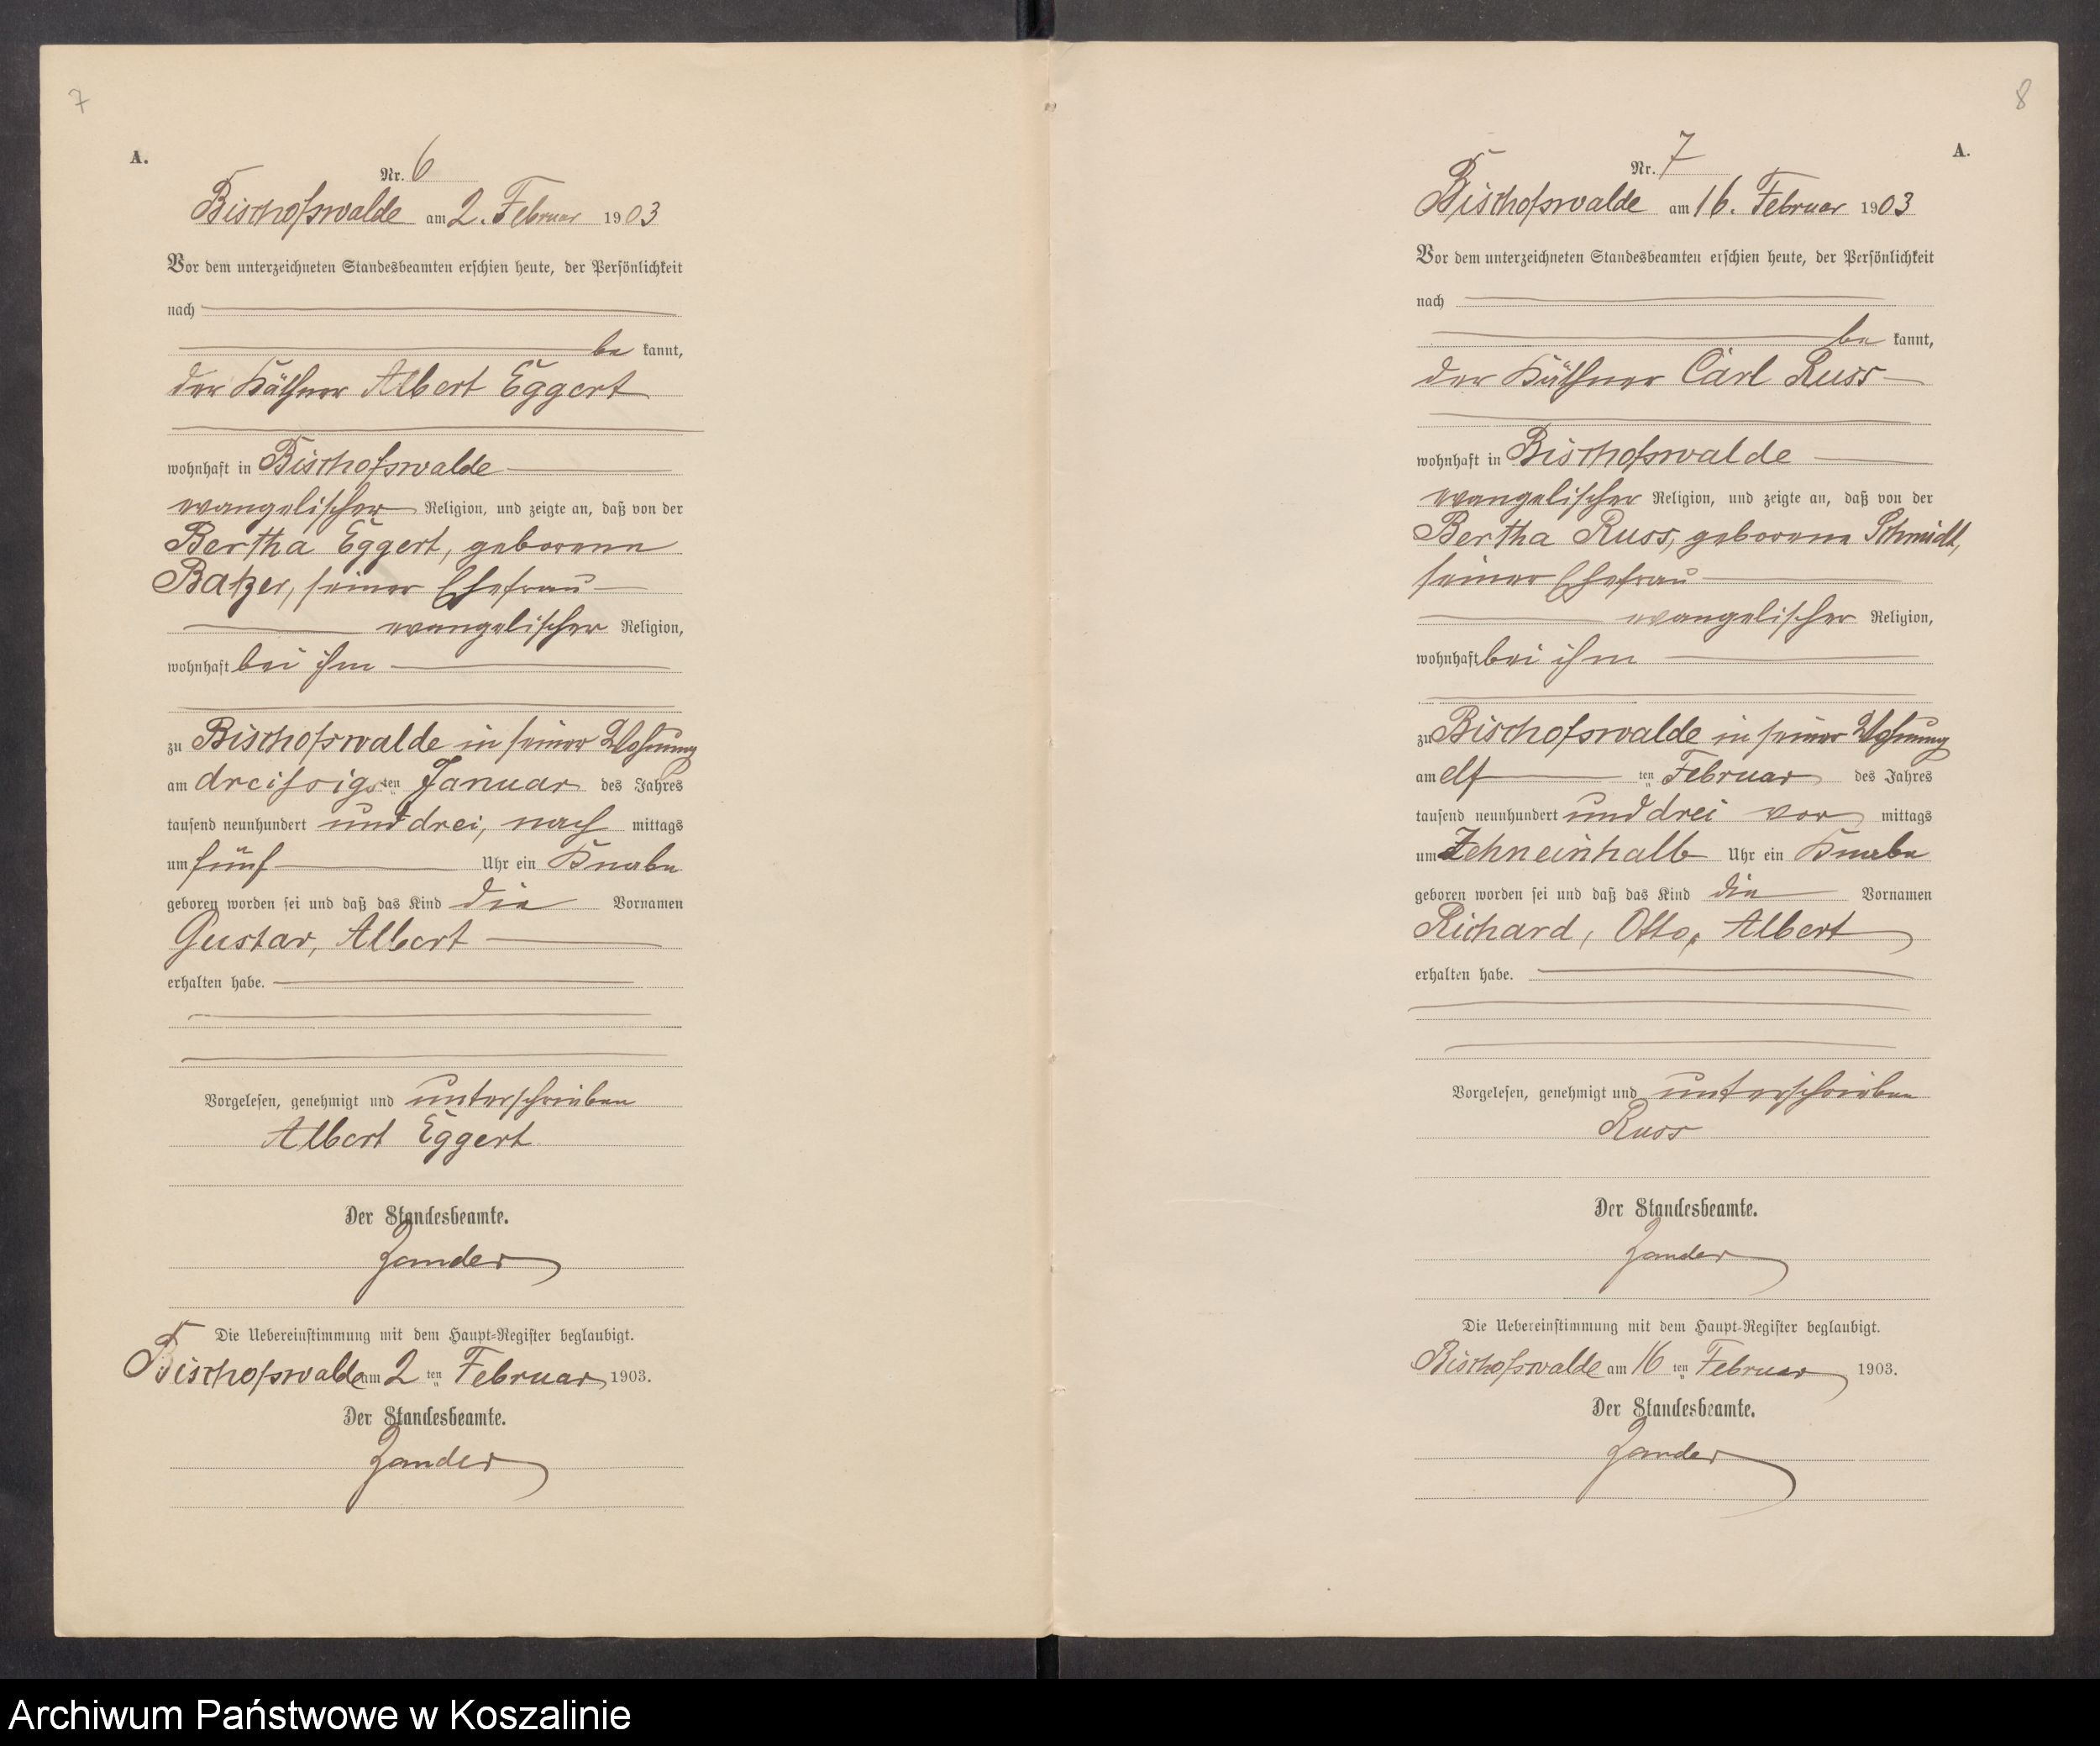 7
A.
Nr. 6
Bischofswalde am 2. Februar 1903
Vor dem unterzeichneten Standesbeamten erschien heute, der Persönlichkeit
nach
be kannt,
der Käthner Albert Eggert
wohnhaft in Bischofswalde
evangelischer Religion, und zeigte an, daß von der
Bertha Eggert, geborene
Batzer, seiner Ehefrau
evangelischer Religion,
wohnhaft bei ihm
zu Bischofswalde in seiner Wohnung
am dreissigsten Januar des Jahres
tausend neunhundert und drei, nach mittags
um fünf Uhr ein Knabe
geboren worden sei und daß das Kind die Vornamen
Gustav, Albert
erhalten habe.
Vorgelesen, genehmigt und unterschrieben
Albert Eggert
Der Standesbeamte.
Zander
Die Uebereinstimmung mit dem Haupt-Register beglaubigt.
Bischofswalde am 2 ten Februar 1903.
Der Standesbeamte.
Zander
8
A.
Nr. 7
Bischofswalde am 16. Februar 1903
Vor dem unterzeichneten Standesbeamten erschien heute, der Persönlichkeit
nach
be kannt,
der Käthner Carl Russ
wohnhaft in Bischofswalde
evangelischer Religion, und zeigte an, daß von der
Bertha Russ, geborene Schmidt,
seiner Ehefrau
evangelischer Religion,
wohnhaft bei ihm
zu Bischofswalde in seiner Wohnung
am elf ten Februar des Jahres
tausend neunhundert und drei vor mittags
um Zehneinhalb Uhr ein Knabe
geboren worden sei und daß das Kind die Vornamen
Richard, Otto, Albert
erhalten habe.
Vorgelesen, genehmigt und unterschrieben
Russ
Der Standesbeamte.
Zander
Die Uebereinstimmung mit dem Haupt-Register beglaubigt.
Bischofswalde am 16 ten Februar 1903.
Der Standesbeamte.
Zander
Archiwum Państwowe w Koszalinie